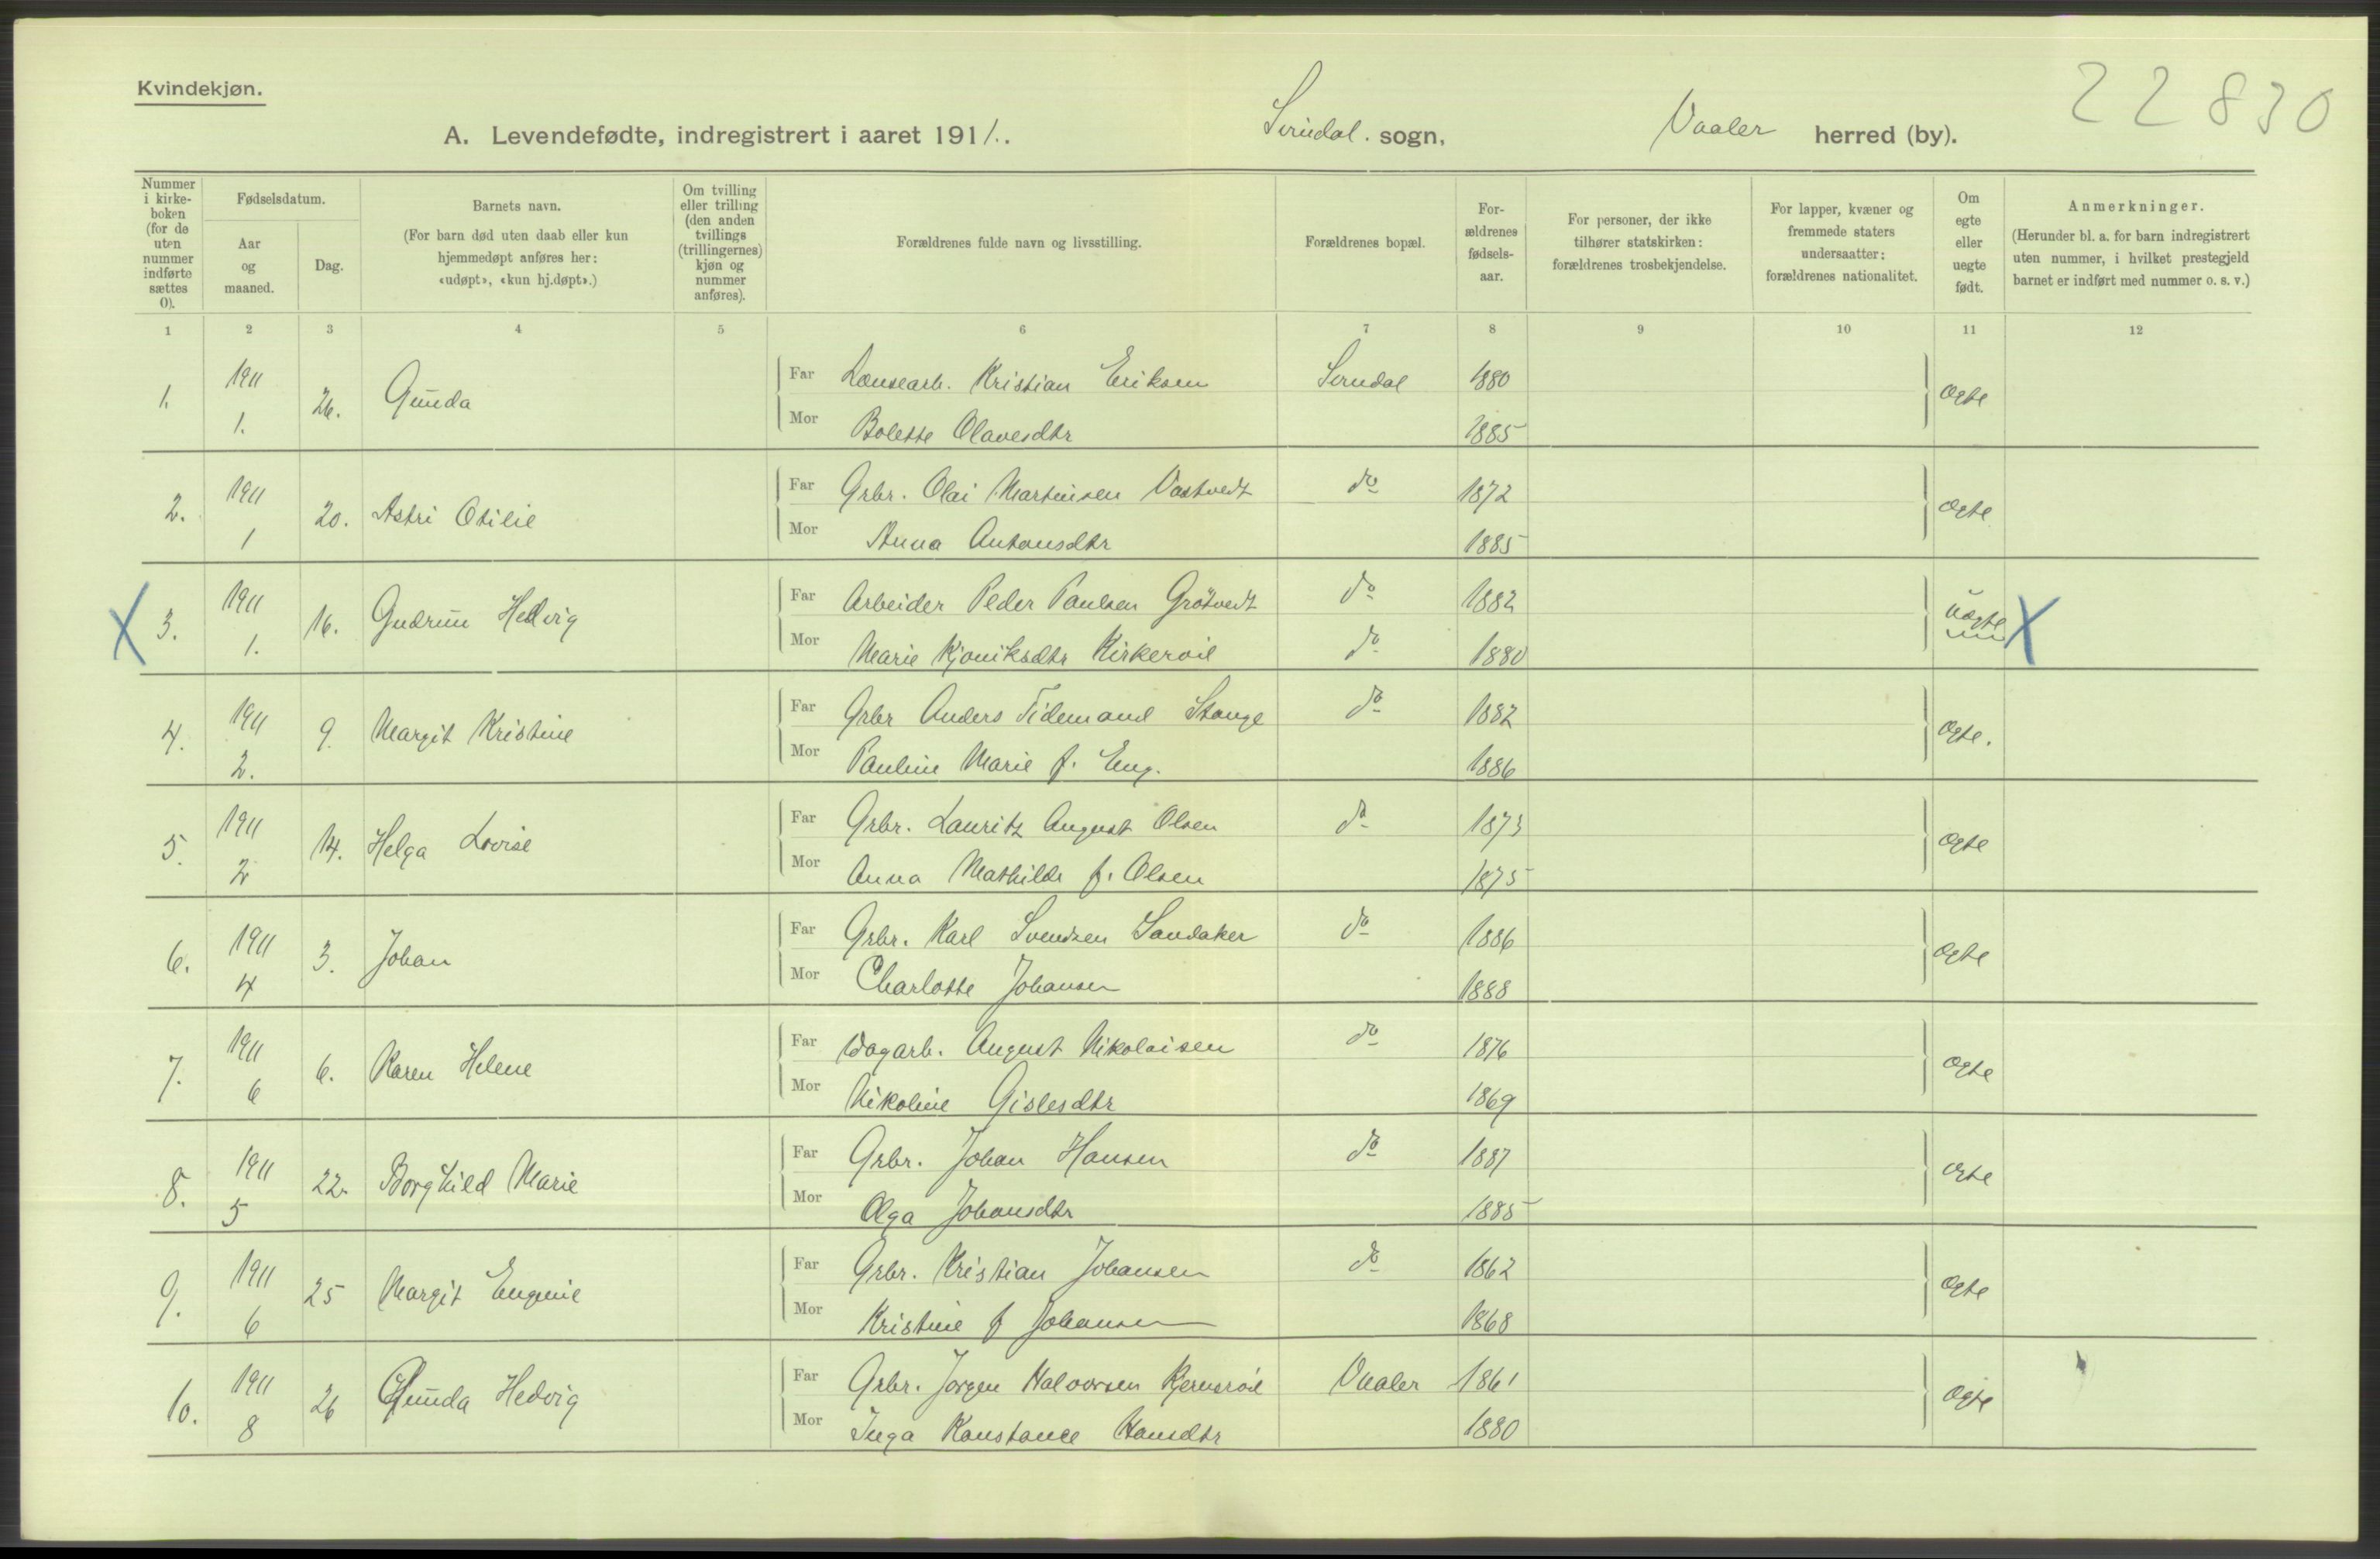 Kvindekjøn.
22830
A. Levendefødte, indregistrert i aaret 1911. Svindal. sogn, Vaaler herred (by).
Nummer i kirkeboken (for de uten nummer indførte sættes 0).
Fødselsdatum.
Aar og maaned.
Dag.
Barnets navn.
(For barn død uten daab eller kun hjemmedøpt anføres her: «udøpt», «kun hj.døpt».)
Om tvilling eller trilling (den anden tvillings (trillingernes) kjøn og nummer anføres).
Forældrenes fulde navn og livsstilling.
Forældrenes bopæl.
Forældrenes fødselsaar.
For personer, der ikke tilhører statskirken: forældrenes trosbekjendelse.
For lapper, kvæner og fremmede staters undersaatter: forældrenes nationalitet.
Om egte eller uegte født.
Anmerkninger.
(Herunder bl. a. for barn indregistrert uten nummer, i hvilket prestegjeld barnet er indført med nummer o. s. v.)
1 2 3 4 5 6 7 8 9 10 11 12
1. 1911 1. 26. Gunda Far Lænsearb. Kristian Eriksen Svindal 1880 ægte
Mor Bolette Olavesdtr 1885
2. 1911 1 20. Astri Otilie Far Grbr. Olai Martinsen Vastvedt do 1872 ægte
Mor Anna Antonsdtr 1885
X 3. 1911 1. 16. Gudrun Hedvig Far Arbeider Peder Paulsen Grötvedt do 1882 uægte X
Mor Marie Kjøniksdtr do 1880
4. 1911 2. 9. Margit Kristine Far Grbr Anders Tidemand Stange do 1882 ægte.
Mor Pauline Marie f. Eng. 1886
5. 1911 2 14. Helga Lovise Far Grbr. Lauritz August Olsen do 1873 ægte
Mor Anna Mathilde f. Olsen 1875
6. 1911 4 3. Johan Far Grbr. Karl Svendsen Sandaker do 1886 ægte
Mor Charlotte Johansen 1888
7. 1911 6 6. Karen Helene Far Dagarb. August Nikolaisen do 1876 ægte
Mor Nikoline Gislesdtr 1869
8. 1911 5 22. Borghild Marie Far Grbr. Johan Hansen do 1887 ægte
Mor Olga Johansdtr 1885
9. 1911 6 25 Margit Eugenie Far Grbr. Kristian Johansen do 1862 ægte
Mor Kristine f Johansen 1868
10. 1911 8 26 Gunda Hedvig Far Grbr. Jørgen Halvorsen Vaaler 1861 ægte
Mor Inga Konstance Hansdtr 1880